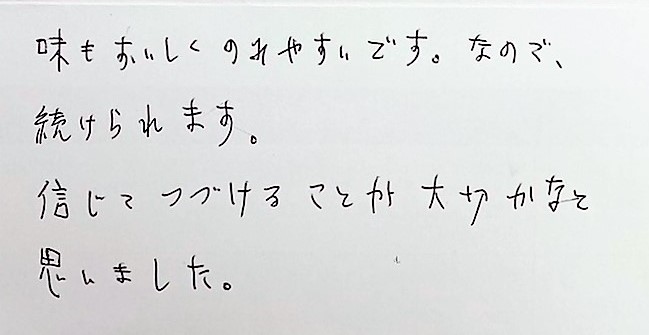 味もおいしくのみやすいです。なので、
続けられます。
信じてつづけることが大切かなと
思いました。